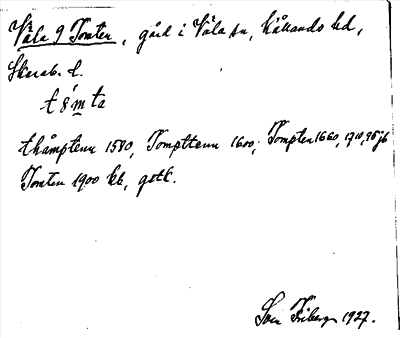 Våla 9 Tomten, gård i Våla sn, Kåkinds hd,
Skarab. l.
tåmta
thåmptenn 1580, Tompttenn 1600, Tompten 1660, 1710, 95 jb
Tomten 1900 kb, gstk.
Sven Friberg 1927.